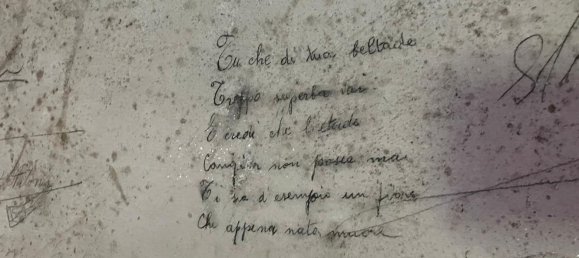 Tu che di tua beltade
Troppo superba vai
E credi che l'etade
Cangiar non possa mai
Ti sia d'esempio un fiore
Che appena nato muore